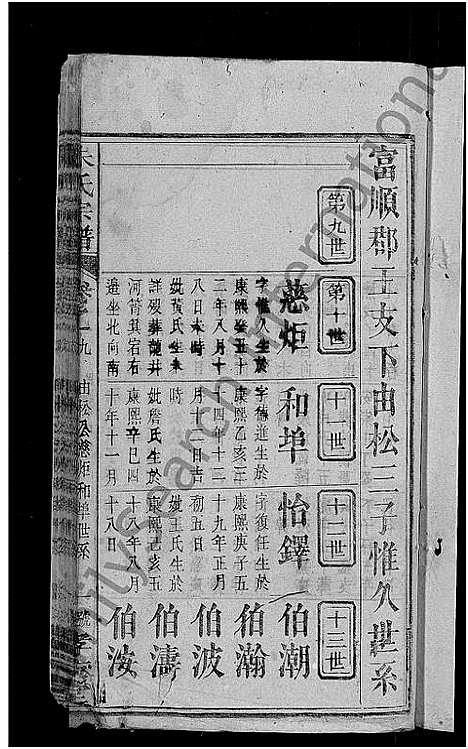 富順郡王支下由松三子惟久世系
第九世
第十世
十一世
十二世
十三世
慈炬
字惟久生於
康熙癸五十
二年八月十
八日未時
妣黃氏生未
詳歿葬龍井
河箐箕宕右
邉坐北向南
和埠
字德進生於
康熙乙亥三
十四年十二
月十二日吉
時
妣詹氏生於
康熙辛巳四
十年十一月
怡鐸
字復任生於
康熙庚子五
十九年正月
初五日
妣王氏生於
康熙己亥五
十八年八月
十八日
伯潮
伯瀚
伯波
伯濤
伯汝
朱氏宗譜
由松公慈炬和埠世系